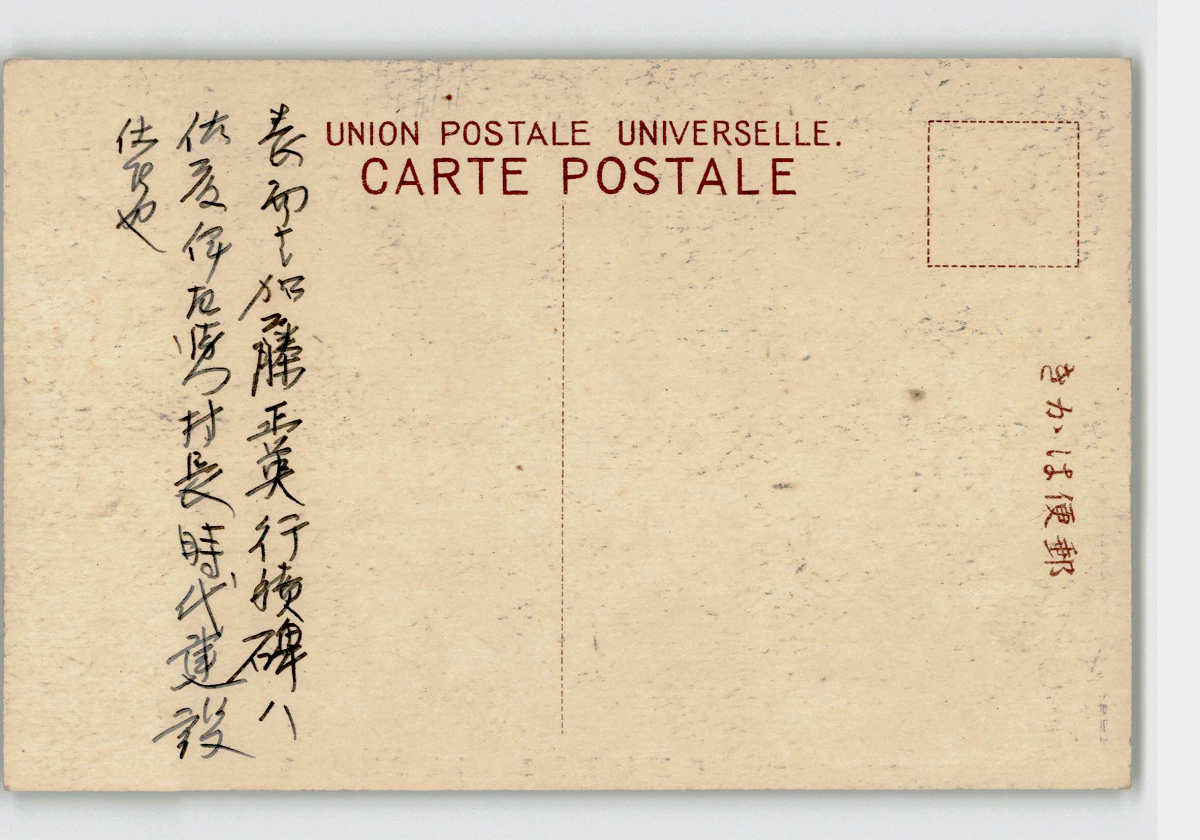 UNION POSTALE UNIVERSELLE.
CARTE POSTALE
きかは便郵
表面之加藤正英行積碑ハ
佐度伊左衛門村長時代建設
仕候也